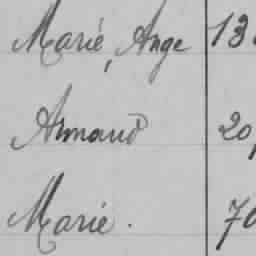 Marie, Ange 13
Armand 20
Marie. 70